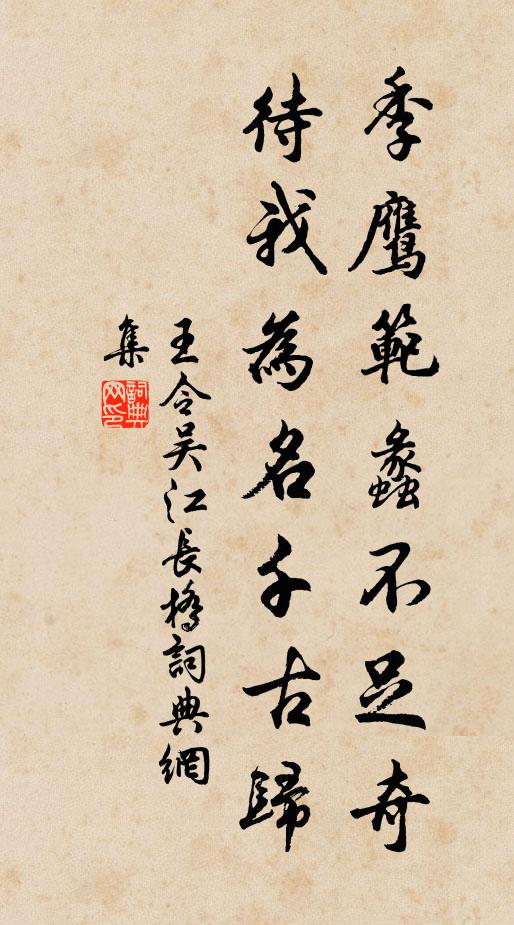 季鹰範蠡不足奇
待我為名千古歸
王令吴江長橋詞典網
集
詞典网印